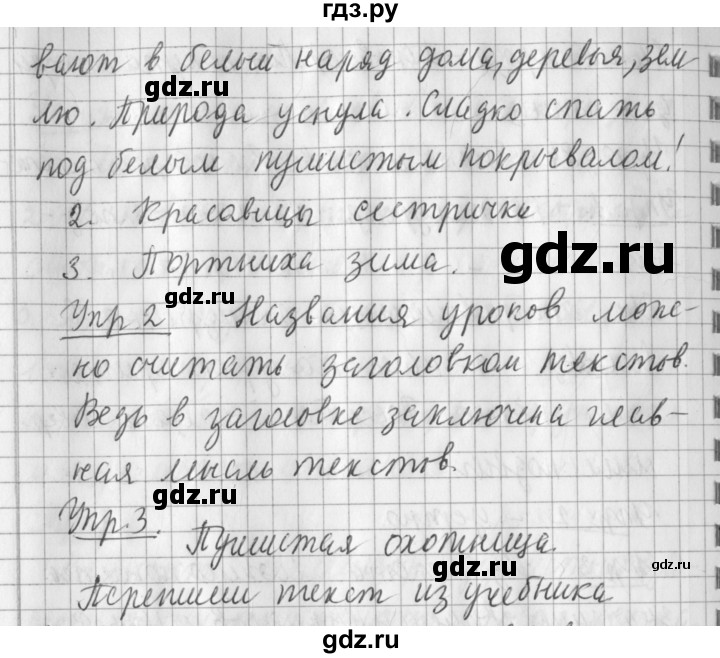 гдз.ру
вают в белый наряд дома, деревья, зем
gdz.ru
лю. Природа уснула. Сладко спать
gdz.ru
под белым пушистым покрывалом!
2. Красавицы сестрички
gdz.ru
3. Портниха зима.
gdz.ru
Упр 2 Названия уроков мож-
но считать заголовком текстов.
gdz.ru
Ведь в заголовке заключена глав-
ная мысль текстов.
gdz.ru
Упр.3.
Пушистая охотница.
gdz.ru
gdz.ru
Перепиши текст из учебника
gdz.ru